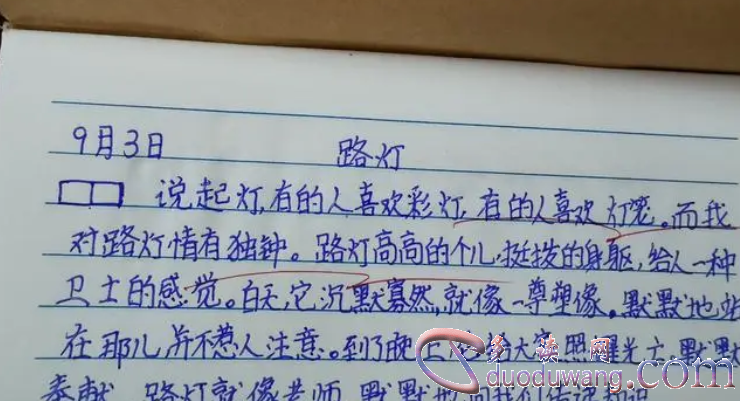 9月3日 路灯
说起灯,有的人喜欢彩灯,有的人喜欢灯笼。而我
对路灯情有独钟。路灯高高的个儿,挺拨的身躯,给人一种
卫士的感觉。白天,它沉默寡然,就像一尊塑像。默默地站
在那儿并不惹人注意。到了晚上,它给大家照耀光亡,默默
奉献 路灯就像老师 默默地向我们传课知识
多读网
duoduwang.com